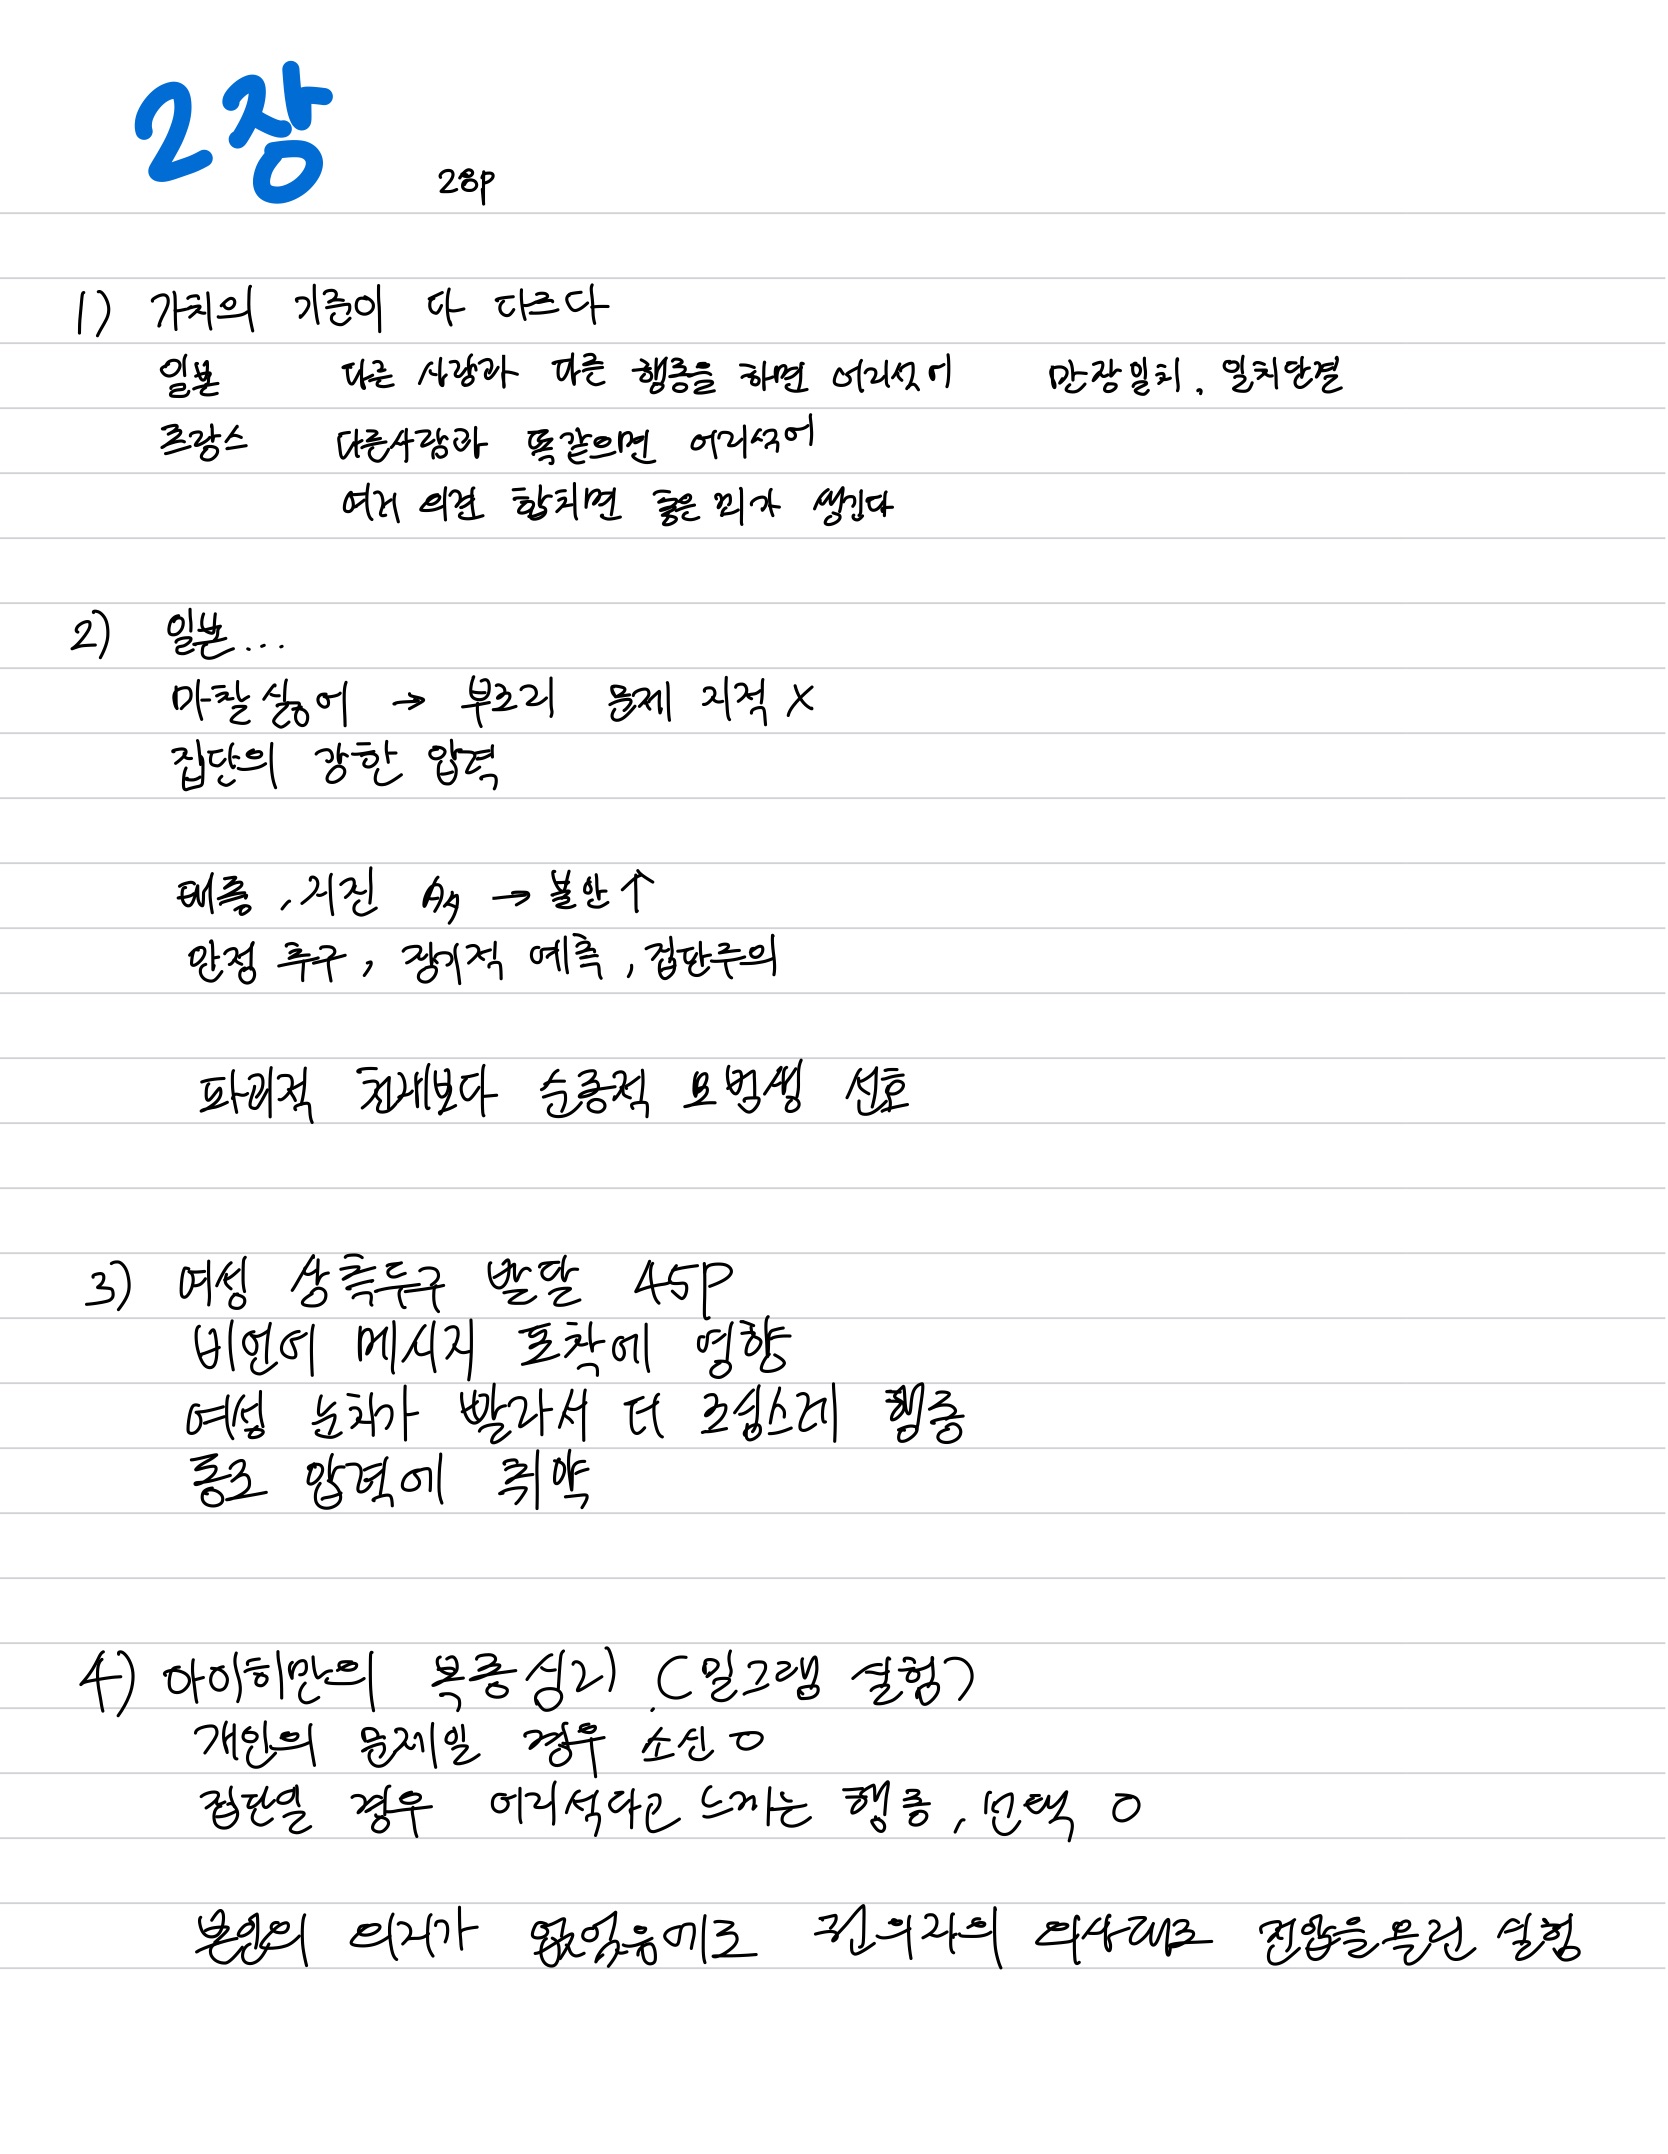 2장
28p
1) 가치의 기준이 다 다르다
일본 다른 사람과 다른 행동을 하면 어리석어 만장일치, 일치단결
프랑스 다른사람과 똑같으면 어리석어
여러 의견 합치면 좋은 꾀가 생긴다
2) 일본...
마찰 싫어 → 부조리 문제 지적 X
집단의 강한 압력
태풍, 지진 → 불안 ↑
안정 추구, 장기적 예측, 집단주의
파괴적 천재보다 순종적 모범생 선호
3) 여성 상측두구 발달 45p
비언어 메시지 포착에 영향
여성 눈치가 빨라서 더 조심스레 행동
동조 압력에 취약
4) 아이히만의 복종심리. (밀그램 실험)
개인의 문제일 경우 소신 O
집단일 경우 어리석다고 느끼는 행동, 선택 O
본인의 의지가 없었음에도 권의자의 의사대로 전압을 올린 실험